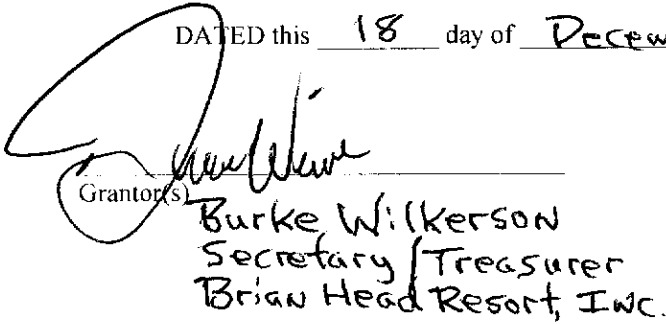 DATED this 18 day of Decem
Grantor(s)
Burke Wilkerson
Secretary/Treasurer
Brian Head Resort, Inc.